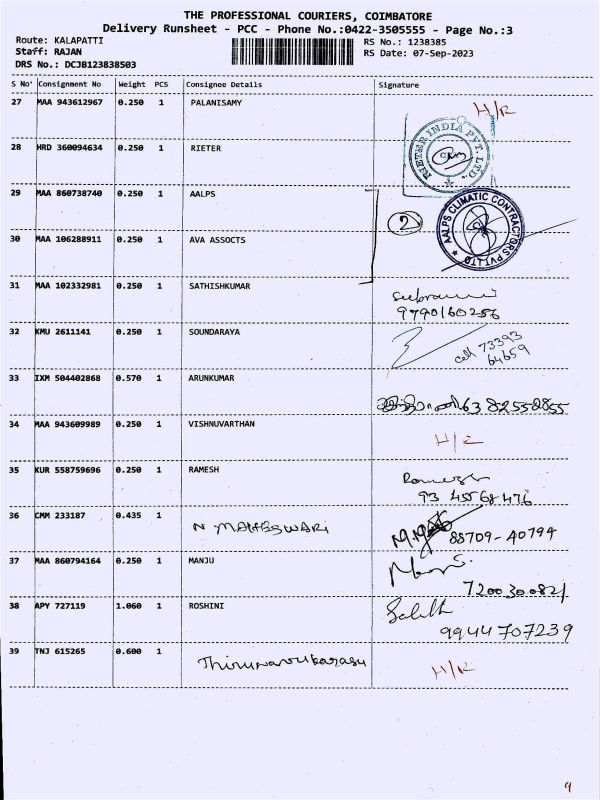 THE PROFESSIONAL COURIERS, COIMBATORE
Delivery Runsheet - PCC - Phone No.:0422-3505555 - Page No.:3
Route: KALAPATTI
RS No.: 1238385
Staff: RAJAN
RS Date: 07-Sep-2023
DRS No.: DCJB123838503
S No Consignment No Weight PCS Consignee Details Signature
27 MAA 943612967 0.250 1 PALANISAMY H/R
28 HRD 360094634 0.250 1 RIETER
RIETER INDIA PVT. LTD.
29 MAA 860738740 0.250 1 AALPS
2
AALPS CLIMATIC CONTRACTORS PVT LTD
30 MAA 106288911 0.250 1 AVA ASSOCTS
31 MAA 102332981 0.250 1 SATHISHKUMAR
9790160256
32 KMU 2611141 0.250 1 SOUNDARAYA
cell 73393
64659
33 IXM 504402868 0.570 1 ARUNKUMAR
6382552855
34 MAA 943609989 0.250 1 VISHNUVARTHAN
35 KUR 558759696 0.250 1 RAMESH
93 45568476
36 CMM 233187 0.435 1 N MAHESWARI
88709-40794
37 MAA 860794164 0.250 1 MANJU
7200300821
38 APY 727119 1.060 1 ROSHINI
9944707239
39 TNJ 615265 0.600 1 Thirunavukarasu H/R